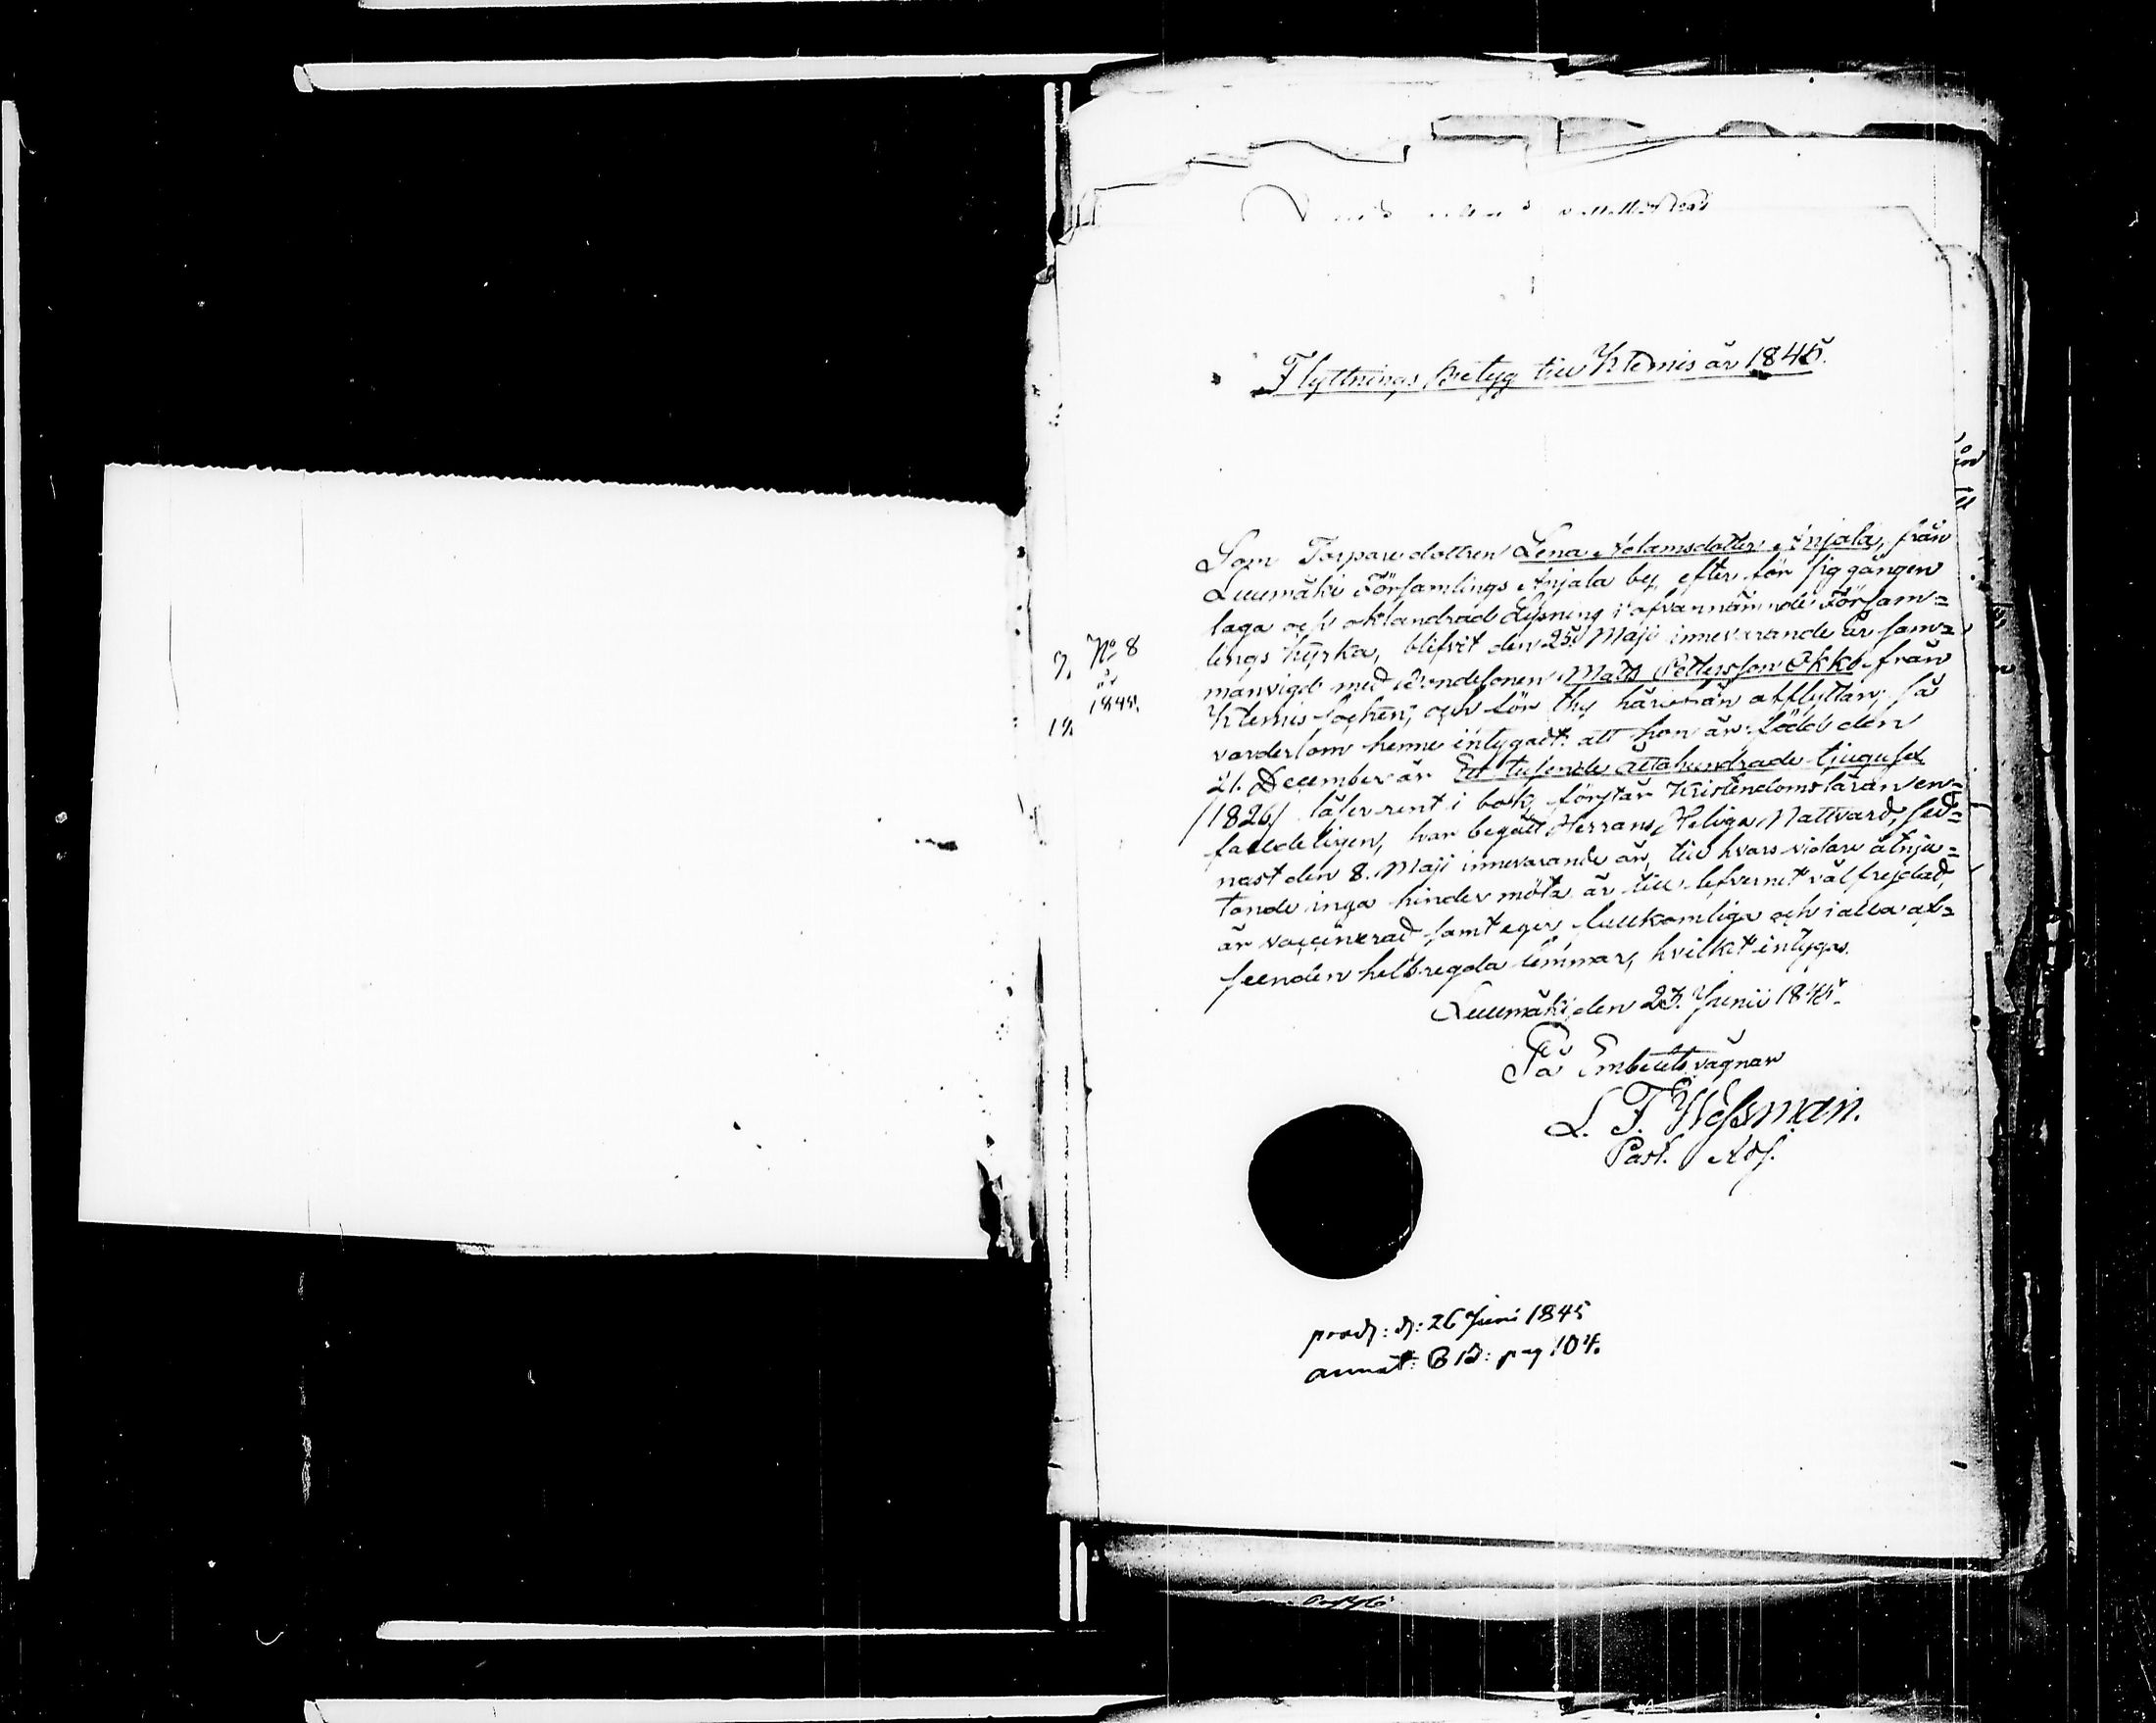 Flyttnings betyg till Itemis år 1845.
Som Torpare dottren Lena Adamsdotter Anjala, från
Luumäki Församlings Anjala by, efter för sig gången
laga och oklandrad Lysning i ofvannämnde Försam=
lings kyrka, blifvit den 25 Maji innevarande år sam=
manvigd med Bondesonen Mats Pettersson Okko från
Itemis Socken, och för thy härifrån afflyttar; så
varder som henne intygadt: att hon är född den
21. December år Ett tusende åttahundrade tjugusex
/1826/ läser rent i bok, förstår Kristendomsläran en=
faldeligen, har begått Herrans Heliga Nattvard, sed=
nast den 8. Maji innevarande år, till hvars vidare åtnju=
tande inga hinder möta är till lefvernet välfrejdad,
är vaccinerad samt eger fullkomliga och i alla af=
seenden helbregda lemmar, hvilket intygas.
Luumäki den 23. Junii 1845.
På Embetets vägnar
L. F. Wessman.
Past. Adj.
No 8
år
1845.
prod: d: 26 Juni 1845
annot: C B: pag 104.